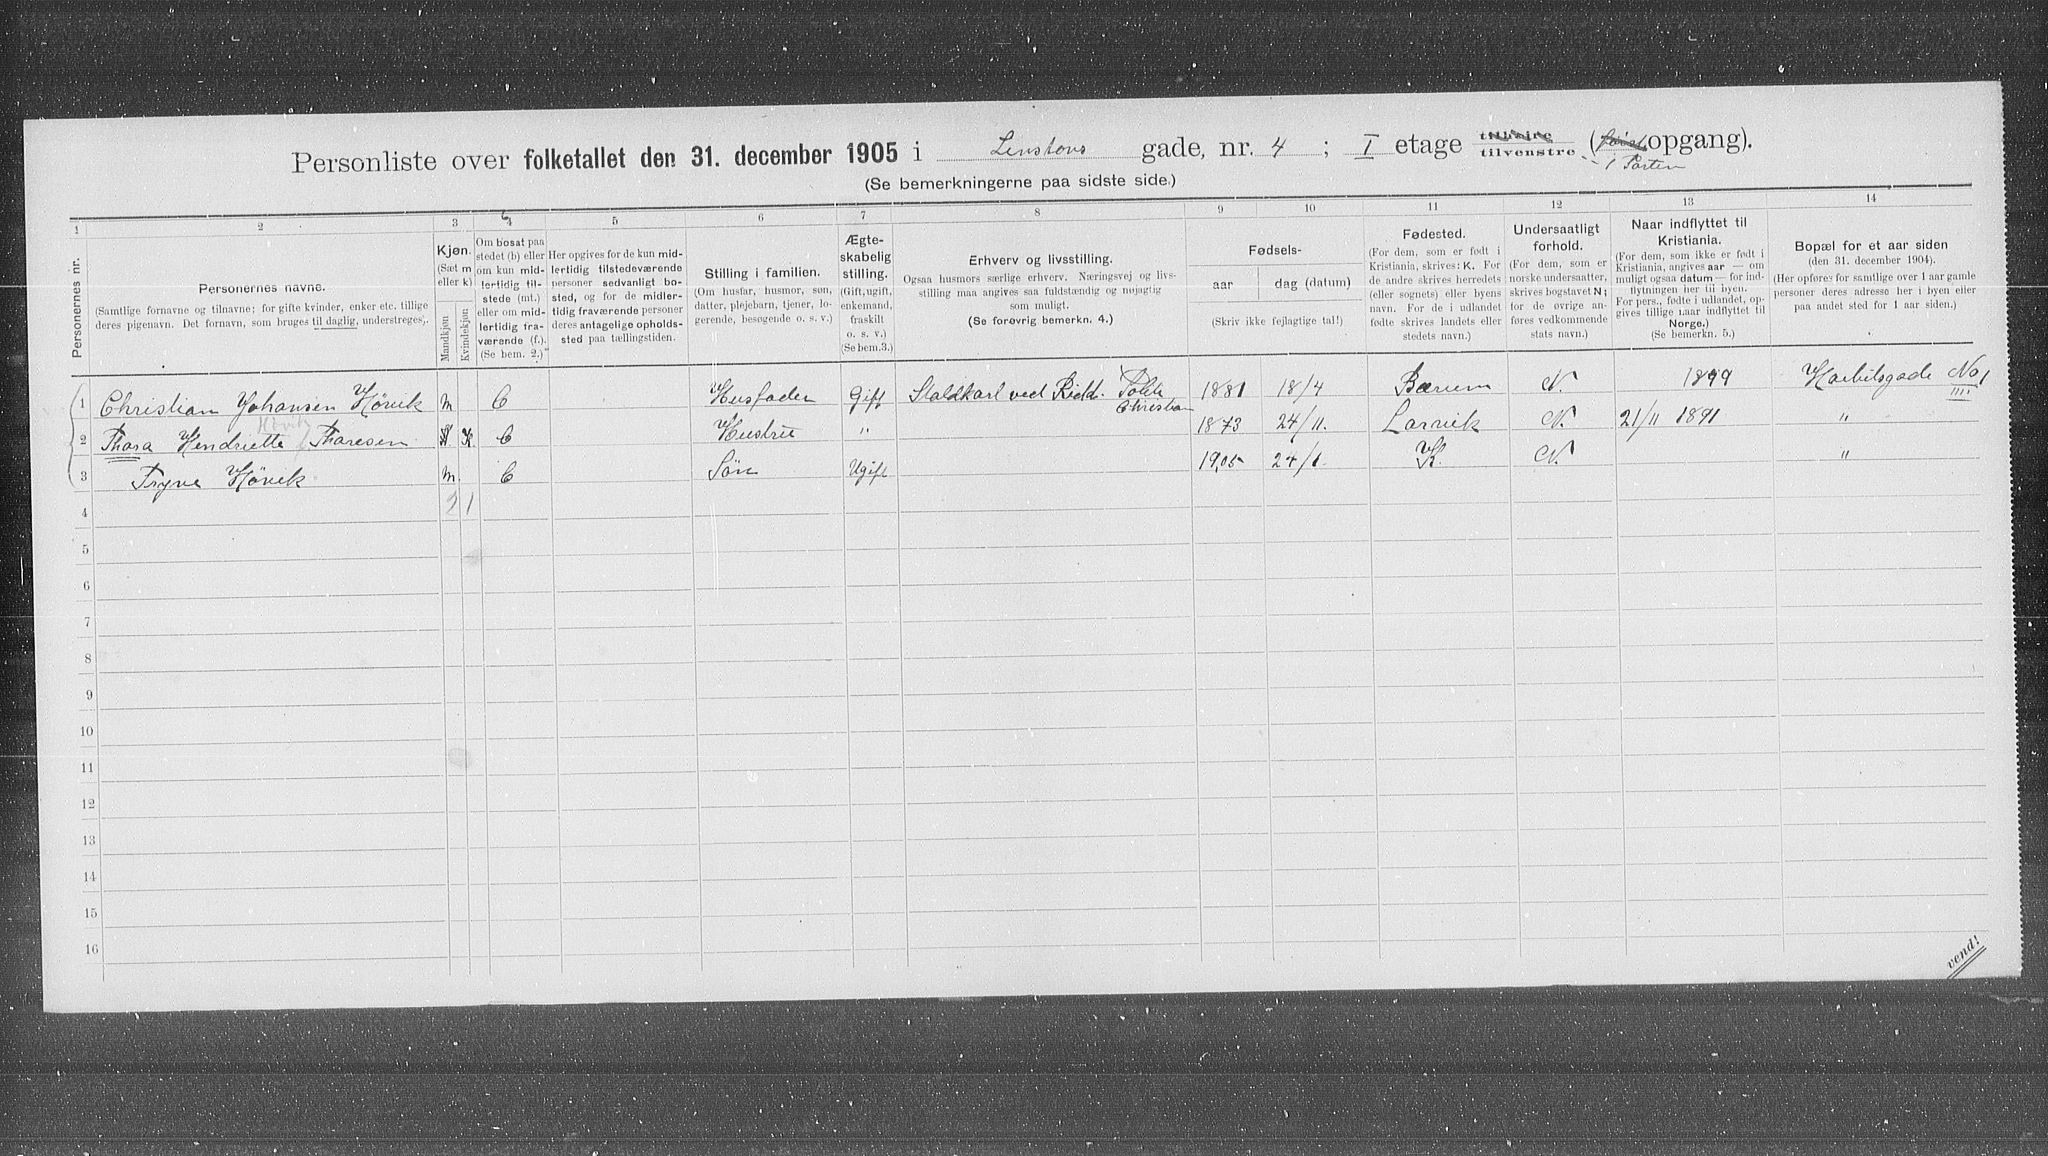 Personliste over folketallet den 31. december 1905 i Linstows gade, nr. 4 ; I etage tilhøire tilvenstre ( opgang).
i Porten
(Se bemerkningerne paa sidste side.)
1 2 3 4 5 6 7 8 9 10 11 12 13 14
Personernes nr.
Personernes navne.
(Samtlige fornavne og tilnavne; for gifte kvinder, enker etc. tillige
deres pigenavn. Det fornavn, som bruges til daglig, understreges).
Kjøn.
(Sæt m
eller k).
Mandkjøn
Kvindekjøn
Om bosat paa
stedet (b) eller
om kun mid-
lertidig til-
stede (mt.)
eller om mid-
lertidig fra-
værende (f.).
(Se bem. 2.)
Her opgives for de kun mid-
lertidig tilstedeværende
personer sedvanligt bo-
sted, og for de midler-
tidig fraværende personer
deres antagelige opholds-
sted paa tællingstiden.
Stilling i familien.
(Om husfar, husmor, søn,
datter, plejebarn, tjener, lo-
gerende, besøgende o. s. v.)
Ægte-
skabelig
stilling.
(Gift, ugift,
enkemand,
fraskilt
o. s. v.)
(Se bem.3.)
Erhverv og livsstilling.
Ogsaa husmors særlige erhverv. Næringsvej og livs-
stilling maa angives saa fuldstændig og nøjagtig
som muligt.
(Se forøvrig bemerkn. 4.)
Fødsels-
aar dag (datum)
(Skriv ikke fejlagtige tal!)
Fødested.
(For dem, som er født i
Kristiania, skrives: K. For
de andre skrives herredets
(eller sognets) eller byens
navn. For de i udlandet
fødte skrives landets eller
stedets navn.)
Undersaatligt
forhold.
(For dem, som er
norske undersaatter,
skrives bogstavet N;
for de øvrige an-
føres vedkommende
stats navn.)
Naar indflyttet til
Kristiania.
(For dem, som ikke er født i
Kristiania, angives aar — om
muligt ogsaa datum — for ind-
flytningen her til byen.
For pers., fødte i udlandet, op-
gives tillige naar indflyttet til
Norge.)
(Se bemerkn. 5.)
Bopæl for et aar siden
(den 31. december 1904).
(Her opføres for samtlige over 1 aar gamle
personer deres adresse her i byen eller
paa andet sted for 1 aar siden.)
1 Christian Johansen Hövik m b Husfader Gift Staldkarl ved 1881 18/4 Bærum N. 1899 No 1 IIII
Christian
Hövik
2 Thora Hendriette Thoresen K. b Hustru " 1873 24/11. Larvik N. 21/11 1891 "
3 Trygve Hövik m. b Søn Ugift 1905 24/1. K. N. "
4 2 1
5
6
7
8
9
10
11
12
13
14
15
16
vend!